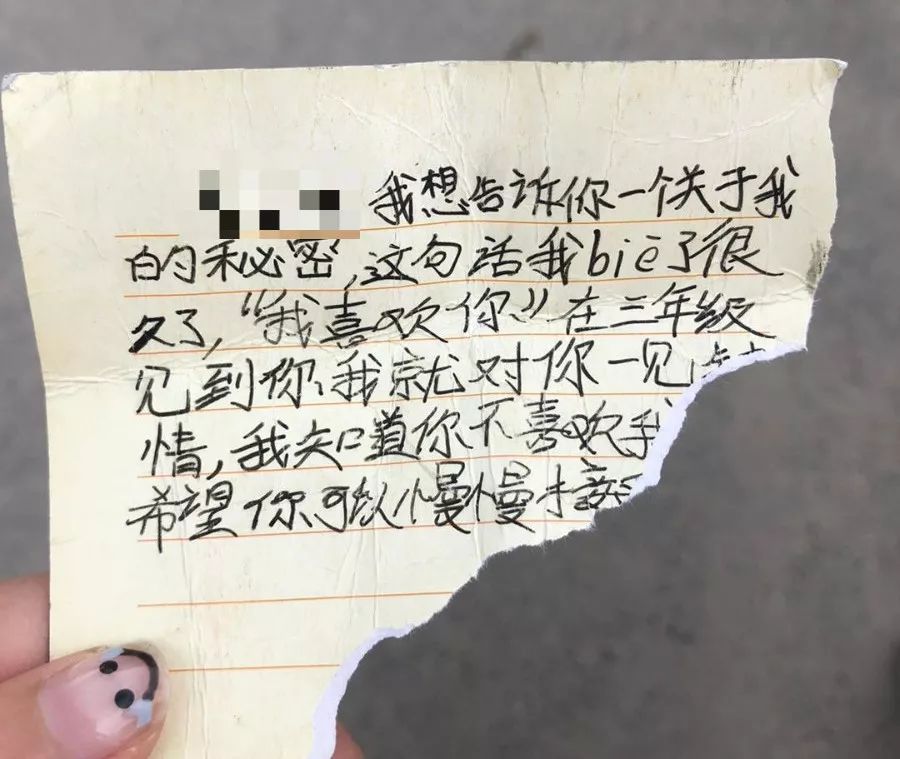 我想告诉你一个关于我
的秘密,这句话我biē了很
久了,“我喜欢你”在三年级
见到你、我就对你一见
情,我知道你不喜欢我
希望你可以慢慢接